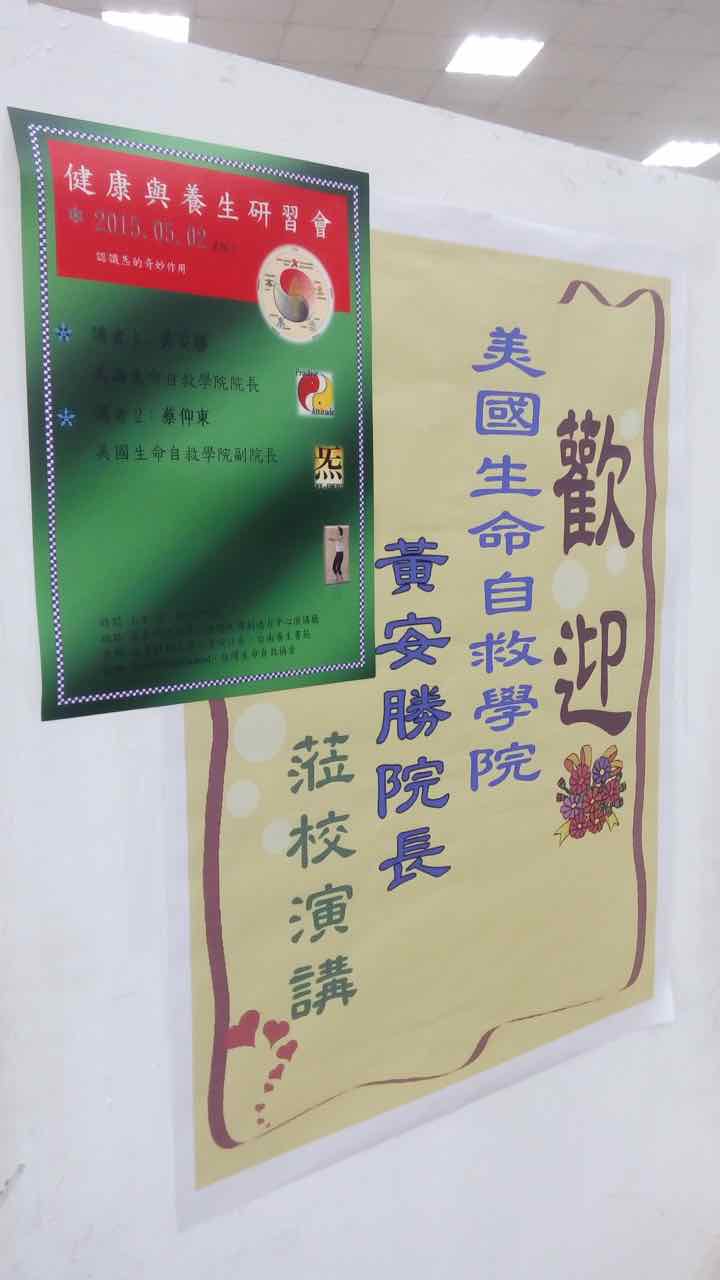 健康與養生研習會
2015.05.02
認識炁的奇妙作用
講者1：黃安勝
美國生命自救學院院長
講者2：蔡仰東
美國生命自救學院副院長
Attitude
炁
歡迎
美國生命自救學院
黃安勝院長
蒞校演講